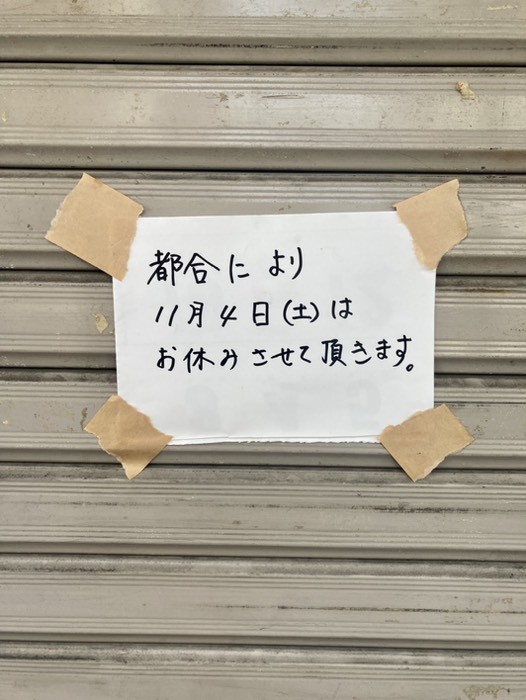 都合により
11月4日(土)は
お休みさせて頂きます。